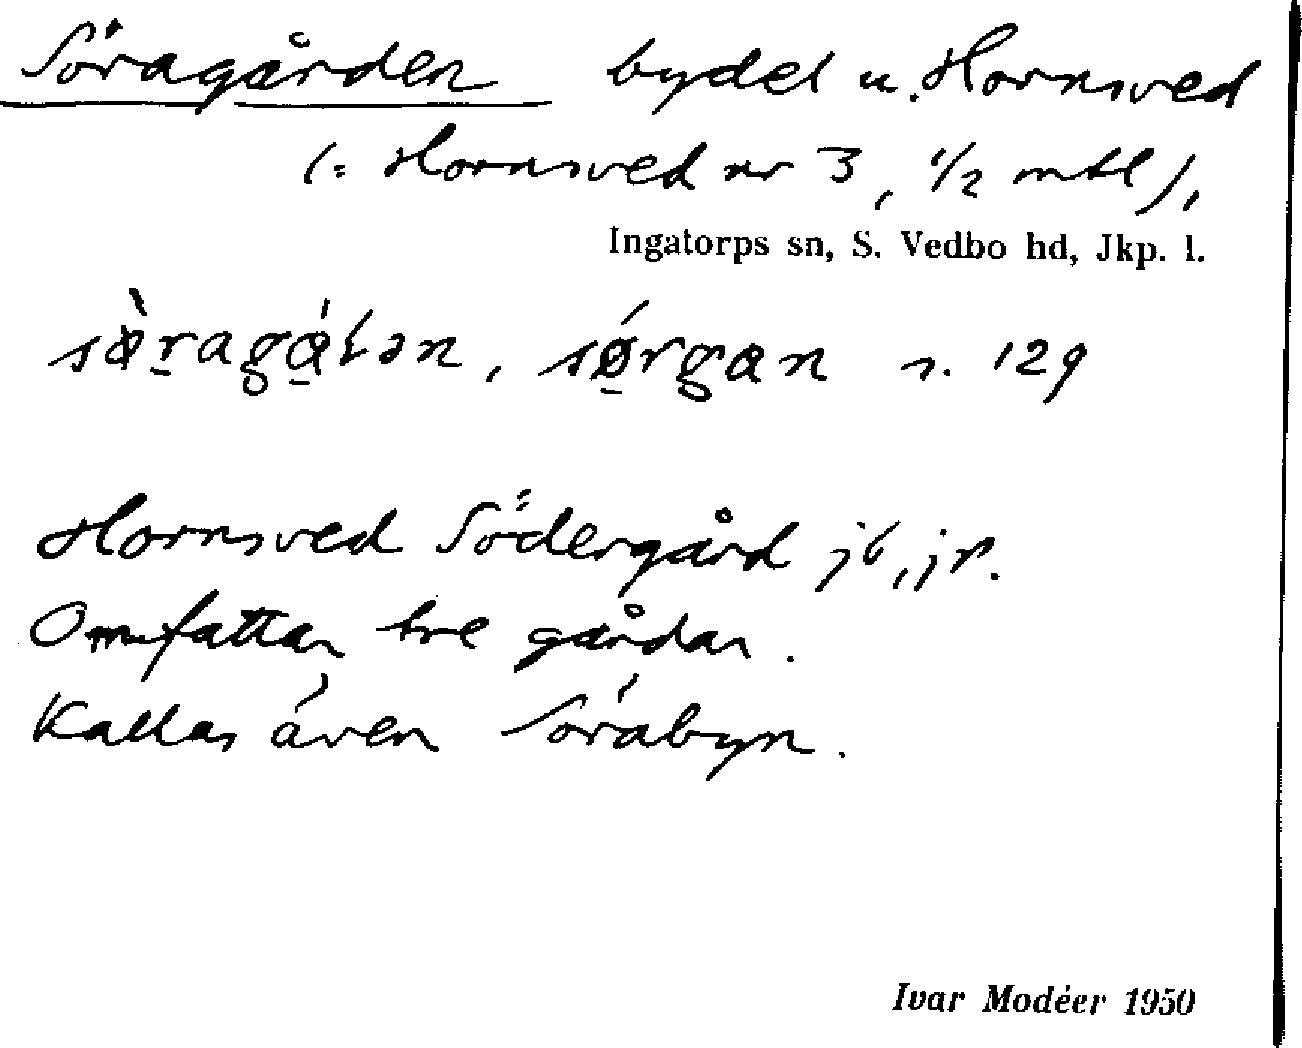 Söragården bydel u. Hornsved
(= Hornsved nr 3, 1/2 mtl),
Ingatorps sn, S. Vedbo hd, Jkp. l.
s. 129
Hornsved Södergård jb, jr.
Omfattar tre gårdar.
Kallas även Sörabyn.
Ivar Modéer 1950